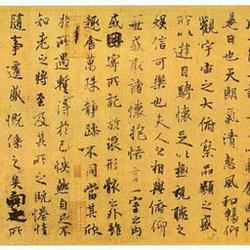 是日也天朗氣清惠風和暢仰
觀宇宙之大俯察品類之盛
所以遊目騁懷足以極視聽之
娛信可樂也夫人之相與俯仰
一世或取諸懷抱悟言一室之內
或因寄所託放浪形骸之外雖
趣舍萬殊靜躁不同當其欣
於所遇暫得於己怏然自足不
知老之將至及其所之既惓情
隨事遷感慨係之矣向之所